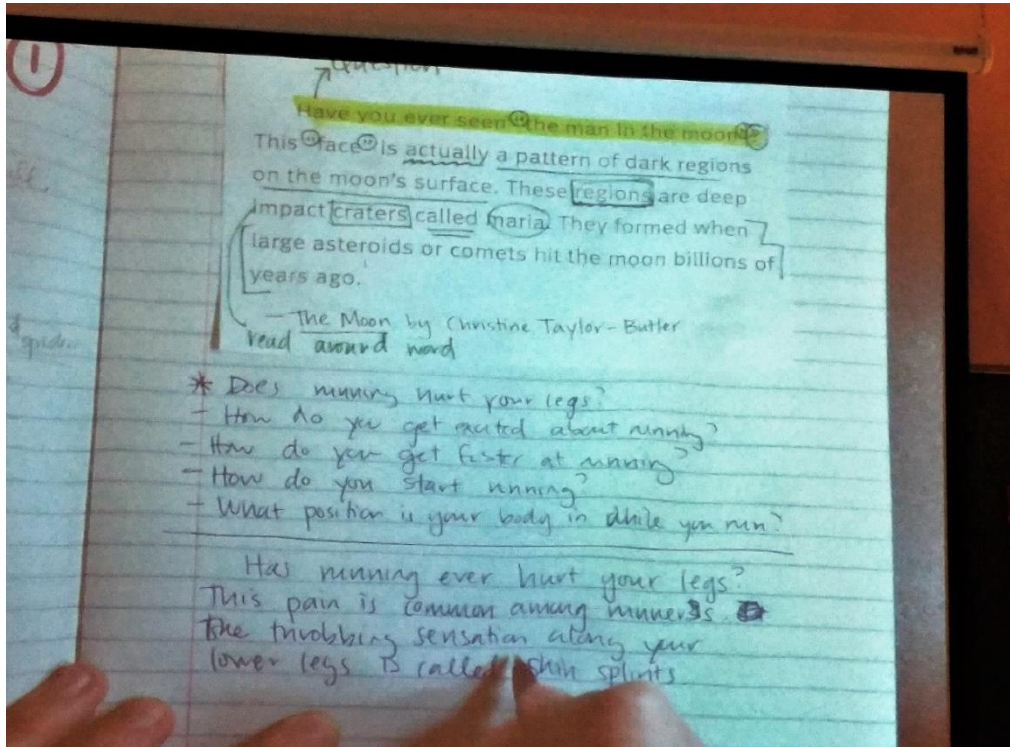 1
Question
Have you ever seen the man in the moon?
This face is actually a pattern of dark regions
on the moon's surface. These regions are deep
impact craters called maria. They formed when
large asteroids or comets hit the moon billions of
years ago.
- The Moon by Christine Taylor-Butler
read around word
* Does running hurt your legs?
- How do you get excited about running?
- How do you get faster at running?
- How do you start running?
- What position is your body in while you run?
Has running ever hurt your legs?
This pain is common among runners.
The throbbing sensation along your
lower legs is called shin splints